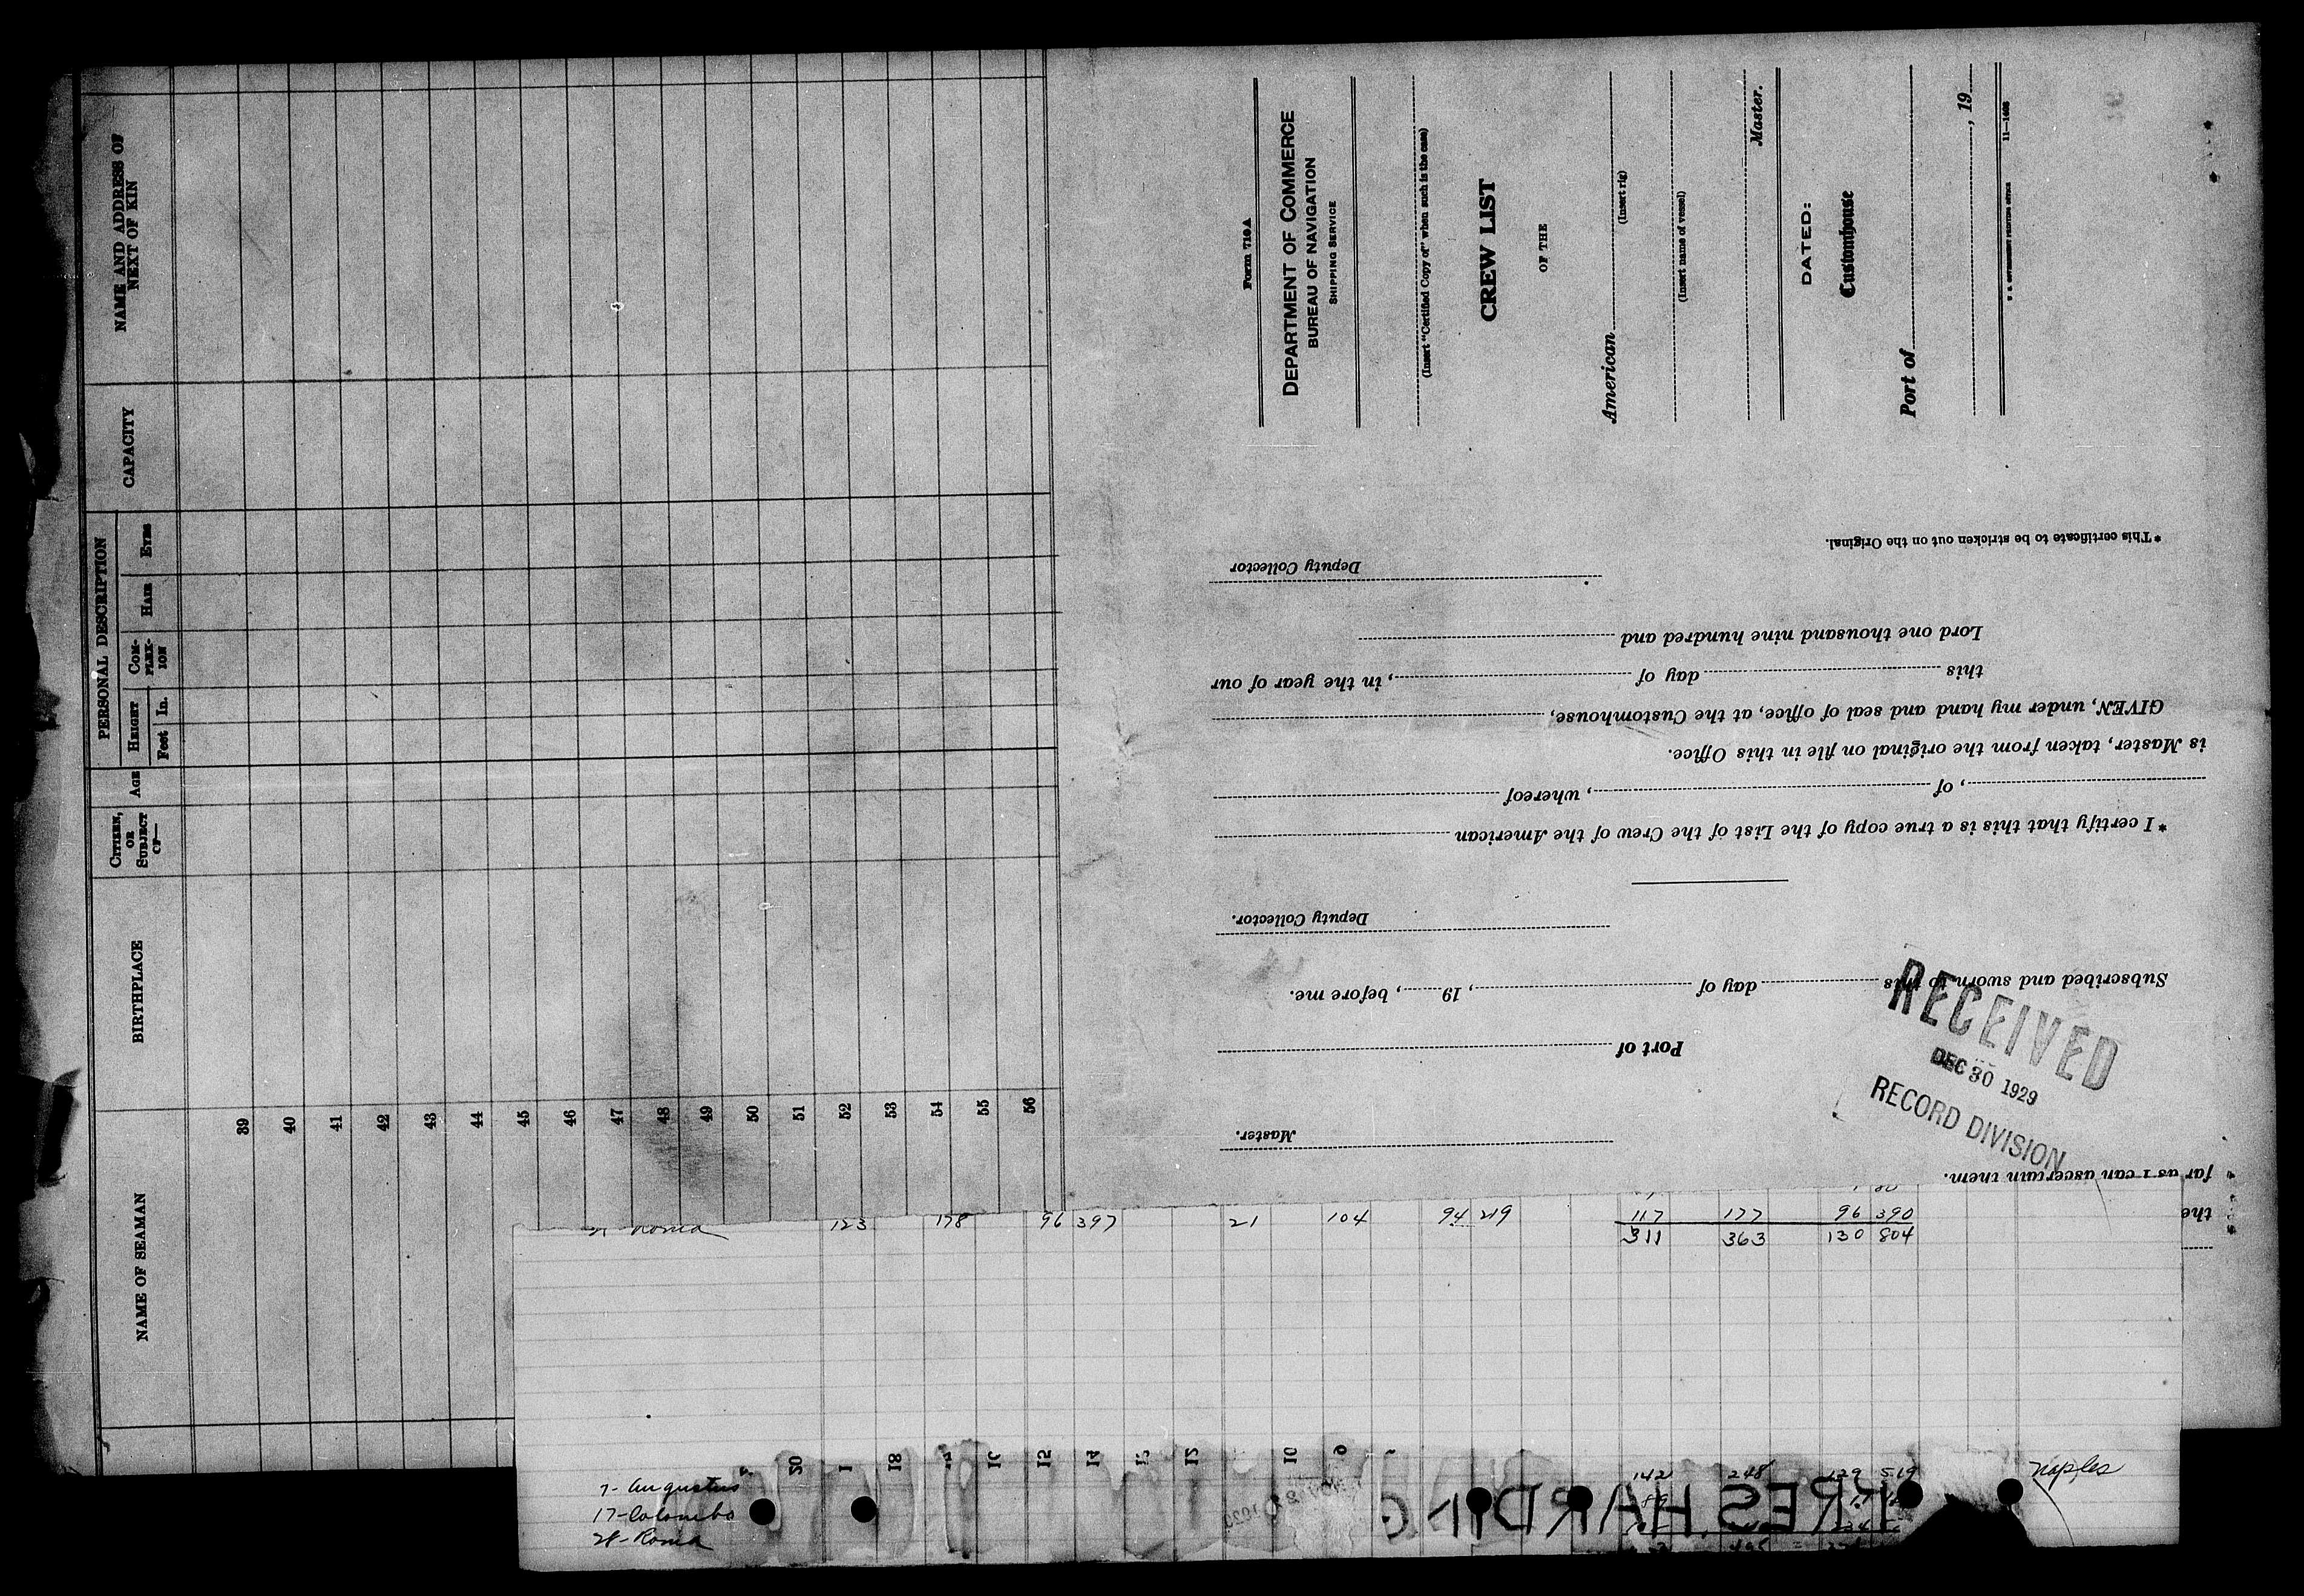 NAME AND ADDRESS OF
NEXT OF KIN
CAPACITY
PERSONAL DESCRIPTION
EYES
HAIR
COM-
PLEX-
ION
HEIGHT
Feet
In.
AGE
CITIZEN,
OR
SUBJECT
OF—
BIRTHPLACE
NAME OF SEAMAN
39
40
41
42
43
44
45
46
47
48
49
50
51
52
53
54
55
56
Form 719A
DEPARTMENT OF COMMERCE
BUREAU OF NAVIGATION
SHIPPING SERVICE
(Insert "Certified Copy of" when such is the case)
CREW LIST
OF THE
American
(Insert rig)
(Insert name of vessel)
Master.
DATED:
Customhouse
Port of
, 19
U. S. GOVERNMENT PRINTING OFFICE 11—1608
far as I can ascertain them.
the
Master.
Port of
Subscribed and sworn to this day of , 19 , before me.
Deputy Collector.
*I certify that this is a true copy of the List of the Crew of the American
, of , whereof
is Master, taken from the original on file in this Office.
GIVEN, under my hand and seal of office, at the Customhouse,
this day of , in the year of our
Lord one thousand nine hundred and
Deputy Collector
*This certificate to be stricken out on the Original.
RECEIVED
DEC 30 1929
RECORD DIVISION
Roma 123 178 96 397 21 104 94 219 117 177 96 390
311 363 130 804
20 18 16 15 14 12 10 9
7- Augustus 142 248 129 519 Naples
17- Colombo
28- Roma
HARDING